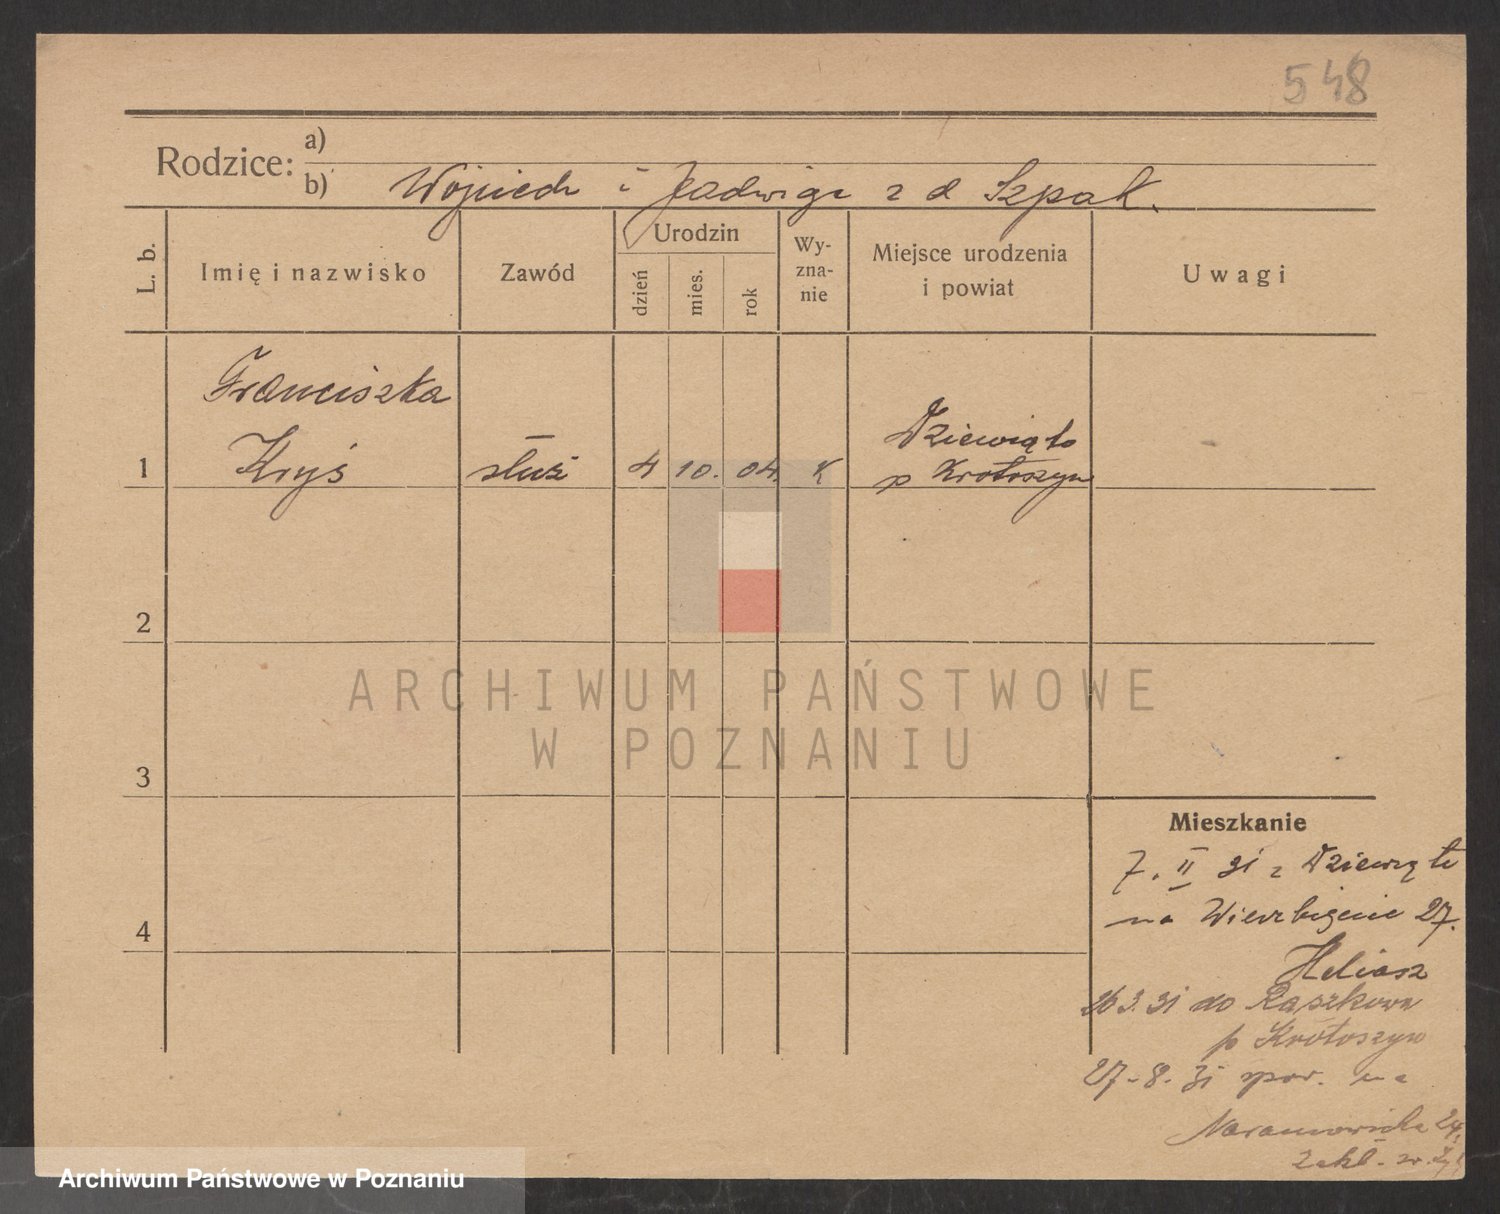 548
Rodzice:
a)
b) Wojciech i Jadwiga z d Szpak.
L. b.
Imię i nazwisko
Zawód
Urodzin
dzień
mies.
rok
Wy-
zna-
nie
Miejsce urodzenia
i powiat
Uwagi
Franciszka
1 Kryś służ 4 10. 04. K
Dziewiąte
p Krotoszyn
2
3
4
Mieszkanie
7. II 31 z
na Wierzbięcice 27.
Heliasz
26 3. 31 do Raszkowa
p Krotoszyn
27-8. 31 spow. na
Naramowicka 24.
Zakł.
ARCHIWUM PAŃSTWOWE
W POZNANIU
Archiwum Państwowe w Poznaniu